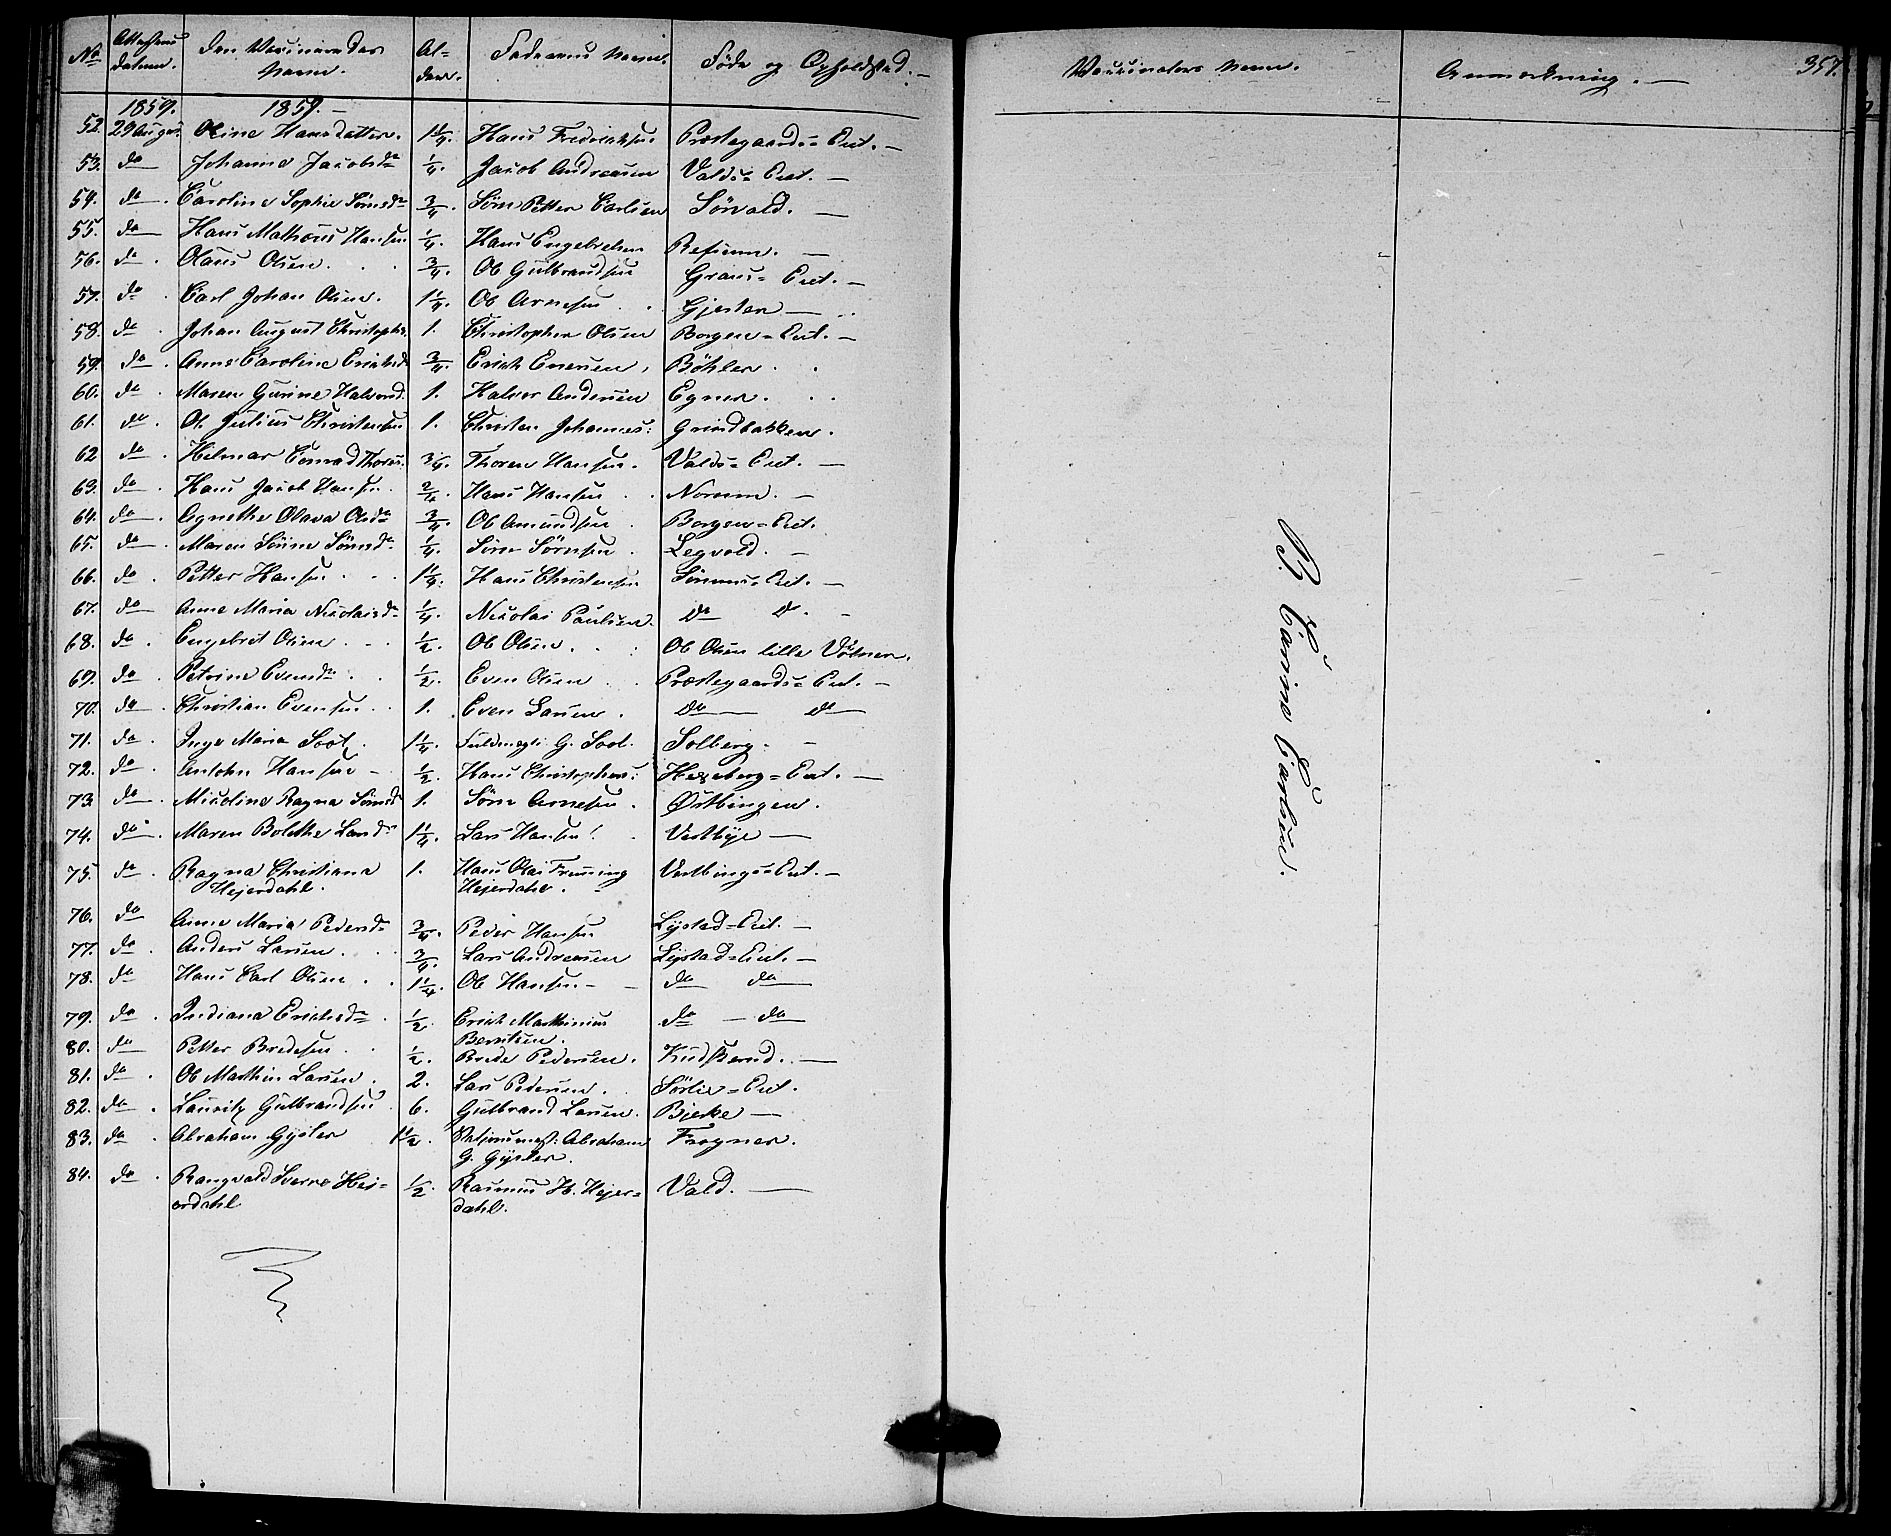 No Attestens datum. Den Vaccineredes Navn. Alder. Faderens Navn. Føde og Opholdsted.— Vaccinators Navn. Anmærkning.— 357.
1859. 1859.—
52. 29 August Oline Hansdatter. 1 1/4. Hans Fredriksen Præstegaards=Eiet.—
53. do Johanne Jacobsdr 1/4. Jacob Andreasen Valds=Eiet.—
54. do. Caroline Sophie Sørnsdr 3/4. Sørn Petter Carlsen Sørvald.—
55. do Hans Mathæus Hansen 1/4. Hans Engebretsen Refsum.—
56. do. Olaus Olsen. 3/4. Ole Gulbrandsen Graus=Eiet.—
57. do. Carl Johan Olsen. 1 1/4. Ole Arnesen Gjester—
58. do. Johan August Christophs. 1. Christopher Olsen Borgen=Eiet.—
59. do. Anne Caroline Erichsd 3/4. Erich Evensen, Böhler.
60. do. Maren Gurine Halvorsd. 1. Halvor Andersen Egner.
61. do. Ole Julius Christensen 1. Christen Johannes: Grindbakken.
62 do. Helmer Conrad Thores. 3/4. Thoren Hansen. Valds=Eiet.—
63. do. Hans Jacob Hansen. 2/4. Hans Hansen Norum.—
64. do. Agnethe Olava Olsdr 3/4. Ole Amundsen Borgen=Eiet.
65. do. Maren Sørine Sørnsdr. 1/4. Sørn Sørnsen. Legvold.—
66. do. Petter Hansen. 1 1/4. Hans Christensen Sørums=Eiet.—
67. do Anne Maria Nicolaisdr 1/4. Nicolai Paulsen. do do.—
68. do. Engebret Olsen 1/2. Ole Olsen. Ole Olsen lille Vølner.
69. do. Petrine Evensdr. 1/2. Even Olsen Præstegaards=Eiet.—
70. do. Christian Evensen. 1. Even Larsen. do do
71. do. Inge Maria Soot. 1 1/4. Fuldmægti G. Soot. Solberg.—
72. do. Anton Hansen— 1/2. Hans Christophers: Hexeberg=Eiet.—
73. do. Nicoline Ragna Sørnsd 1. Sørn Arnesen. Østbingen.
74. do. Maren Bolethe Larsdr 1 1/4. Lars Hansen. Vestbye—
75. do. Ragna Christiane 1. Hans Olai Flemming Vestbings=Eiet.—
Hejerdahl. Hejerdahl.
76. do Anne Maria Pedersdr 3/4. Peder Hansen Lystad=Eiet.—
77. do. Anders Larsen. 3/4. Lars Andreasen Lystad=Eiet.—
78. do Hans Carl Olsen. 1 1/4. Ole Hansen— do do
79. do. Indiana Erichsdr. 1/2. Erich Marthinius do — do
Berntsen.
80. do Petter Bredesen. 1/2. Brede Pedersen. Kudsrud.—
81. do. Ole Marthin Larsen. 2. Lars Pedersen. Sørlie=Eiet.
82. do. Lauritz Gulbrandsen 6. Gulbrand Larsen. Bjerke—
83. do. Abraham Gysler 1 1/2. Stationsmest: Abraham Frogner.
G. Gysler.
84. do. Rangvald Sverre Hej= 1/2. Rasmus H. Hejer= Vald.—
erdahl dahl.
B. Carine Carlsen.